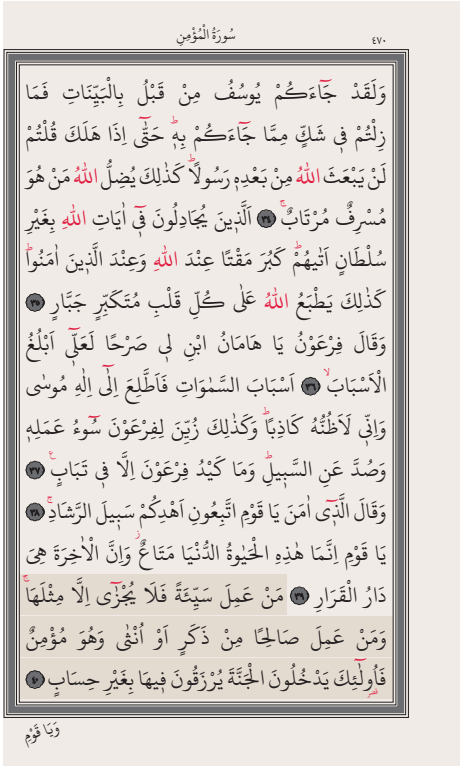 سُورَةُ الْمُؤْمِنِ
٤٧٠
وَلَقَدْ جَٓاءَكُمْ يُوسُفُ مِنْ قَبْلُ بِالْبَيِّنَاتِ فَمَا
زِلْتُمْ فٖي شَكٍّ مِمَّا جَٓاءَكُمْ بِهٖؕ حَتّٰٓى اِذَا هَلَكَ قُلْتُمْ
لَنْ يَبْعَثَ اللّٰهُ مِنْ بَعْدِهٖ رَسُولًاؕ كَذٰلِكَ يُضِلُّ اللّٰهُ مَنْ هُوَ
مُسْرِفٌ مُرْتَابٌۚ ﴿٣٤﴾ اَلَّذٖينَ يُجَادِلُونَ فٖٓي اٰيَاتِ اللّٰهِ بِغَيْرِ
سُلْطَانٍ اَتٰيهُمْؕ كَبُرَ مَقْتًا عِنْدَ اللّٰهِ وَعِنْدَ الَّذٖينَ اٰمَنُواؕ
كَذٰلِكَ يَطْبَعُ اللّٰهُ عَلٰى كُلِّ قَلْبِ مُتَكَبِّرٍ جَبَّارٍ ﴿٣٥﴾
وَقَالَ فِرْعَوْنُ يَا هَامَانُ ابْنِ لٖي صَرْحًا لَعَلّٖٓي اَبْلُغُ
الْاَسْبَابَۙ ﴿٣٦﴾ اَسْبَابَ السَّمٰوَاتِ فَاَطَّلِعَ اِلٰٓى اِلٰهِ مُوسٰى
وَاِنّٖي لَاَظُنُّهُ كَاذِبًاؕ وَكَذٰلِكَ زُيِّنَ لِفِرْعَوْنَ سُٓوءُ عَمَلِهٖ
وَصُدَّ عَنِ السَّبٖيلِؕ وَمَا كَيْدُ فِرْعَوْنَ اِلَّا فٖي تَبَابٍࣖ ﴿٣٧﴾
وَقَالَ الَّذٖٓي اٰمَنَ يَا قَوْمِ اتَّبِعُونِ اَهْدِكُمْ سَبٖيلَ الرَّشَادِۚ ﴿٣٨﴾
يَا قَوْمِ اِنَّمَا هٰذِهِ الْحَيٰوةُ الدُّنْيَا مَتَاعٌؗ وَاِنَّ الْاٰخِرَةَ هِيَ
دَارُ الْقَرَارِ ﴿٣٩﴾ مَنْ عَمِلَ سَيِّئَةً فَلَا يُجْزٰٓى اِلَّا مِثْلَهَاۚ
وَمَنْ عَمِلَ صَالِحًا مِنْ ذَكَرٍ اَوْ اُنْثٰى وَهُوَ مُؤْمِنٌ
فَاُو۬لٰٓئِكَ يَدْخُلُونَ الْجَنَّةَ يُرْزَقُونَ فٖيهَا بِغَيْرِ حِسَابٍ ﴿٤٠﴾
قصر
وَيَا قَوْمِ